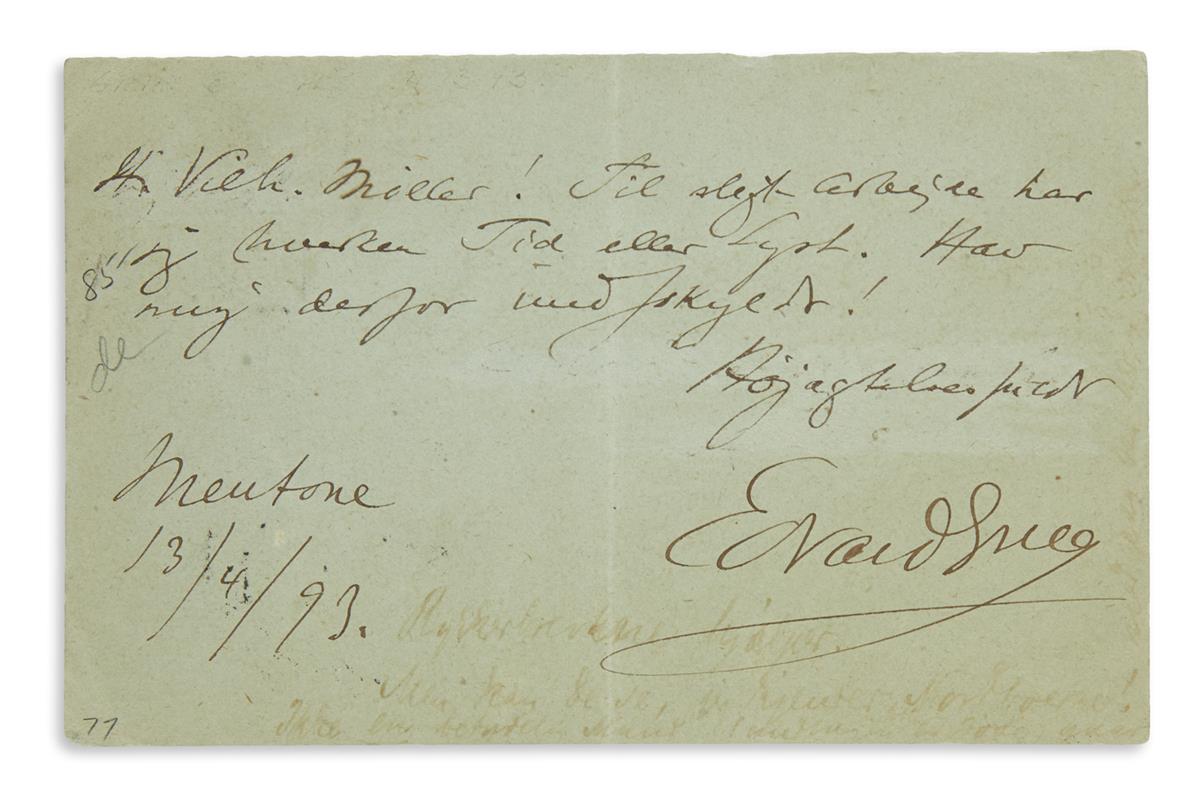 Hr. Vilh. Møller! Til sligt Arbejde har
jeg hverken Tid eller Lyst. Hav
mig derfor undskyldt!
85
de
Højagtelsesfuldt
Mentone
Edvard Grieg
13/4/93.
77